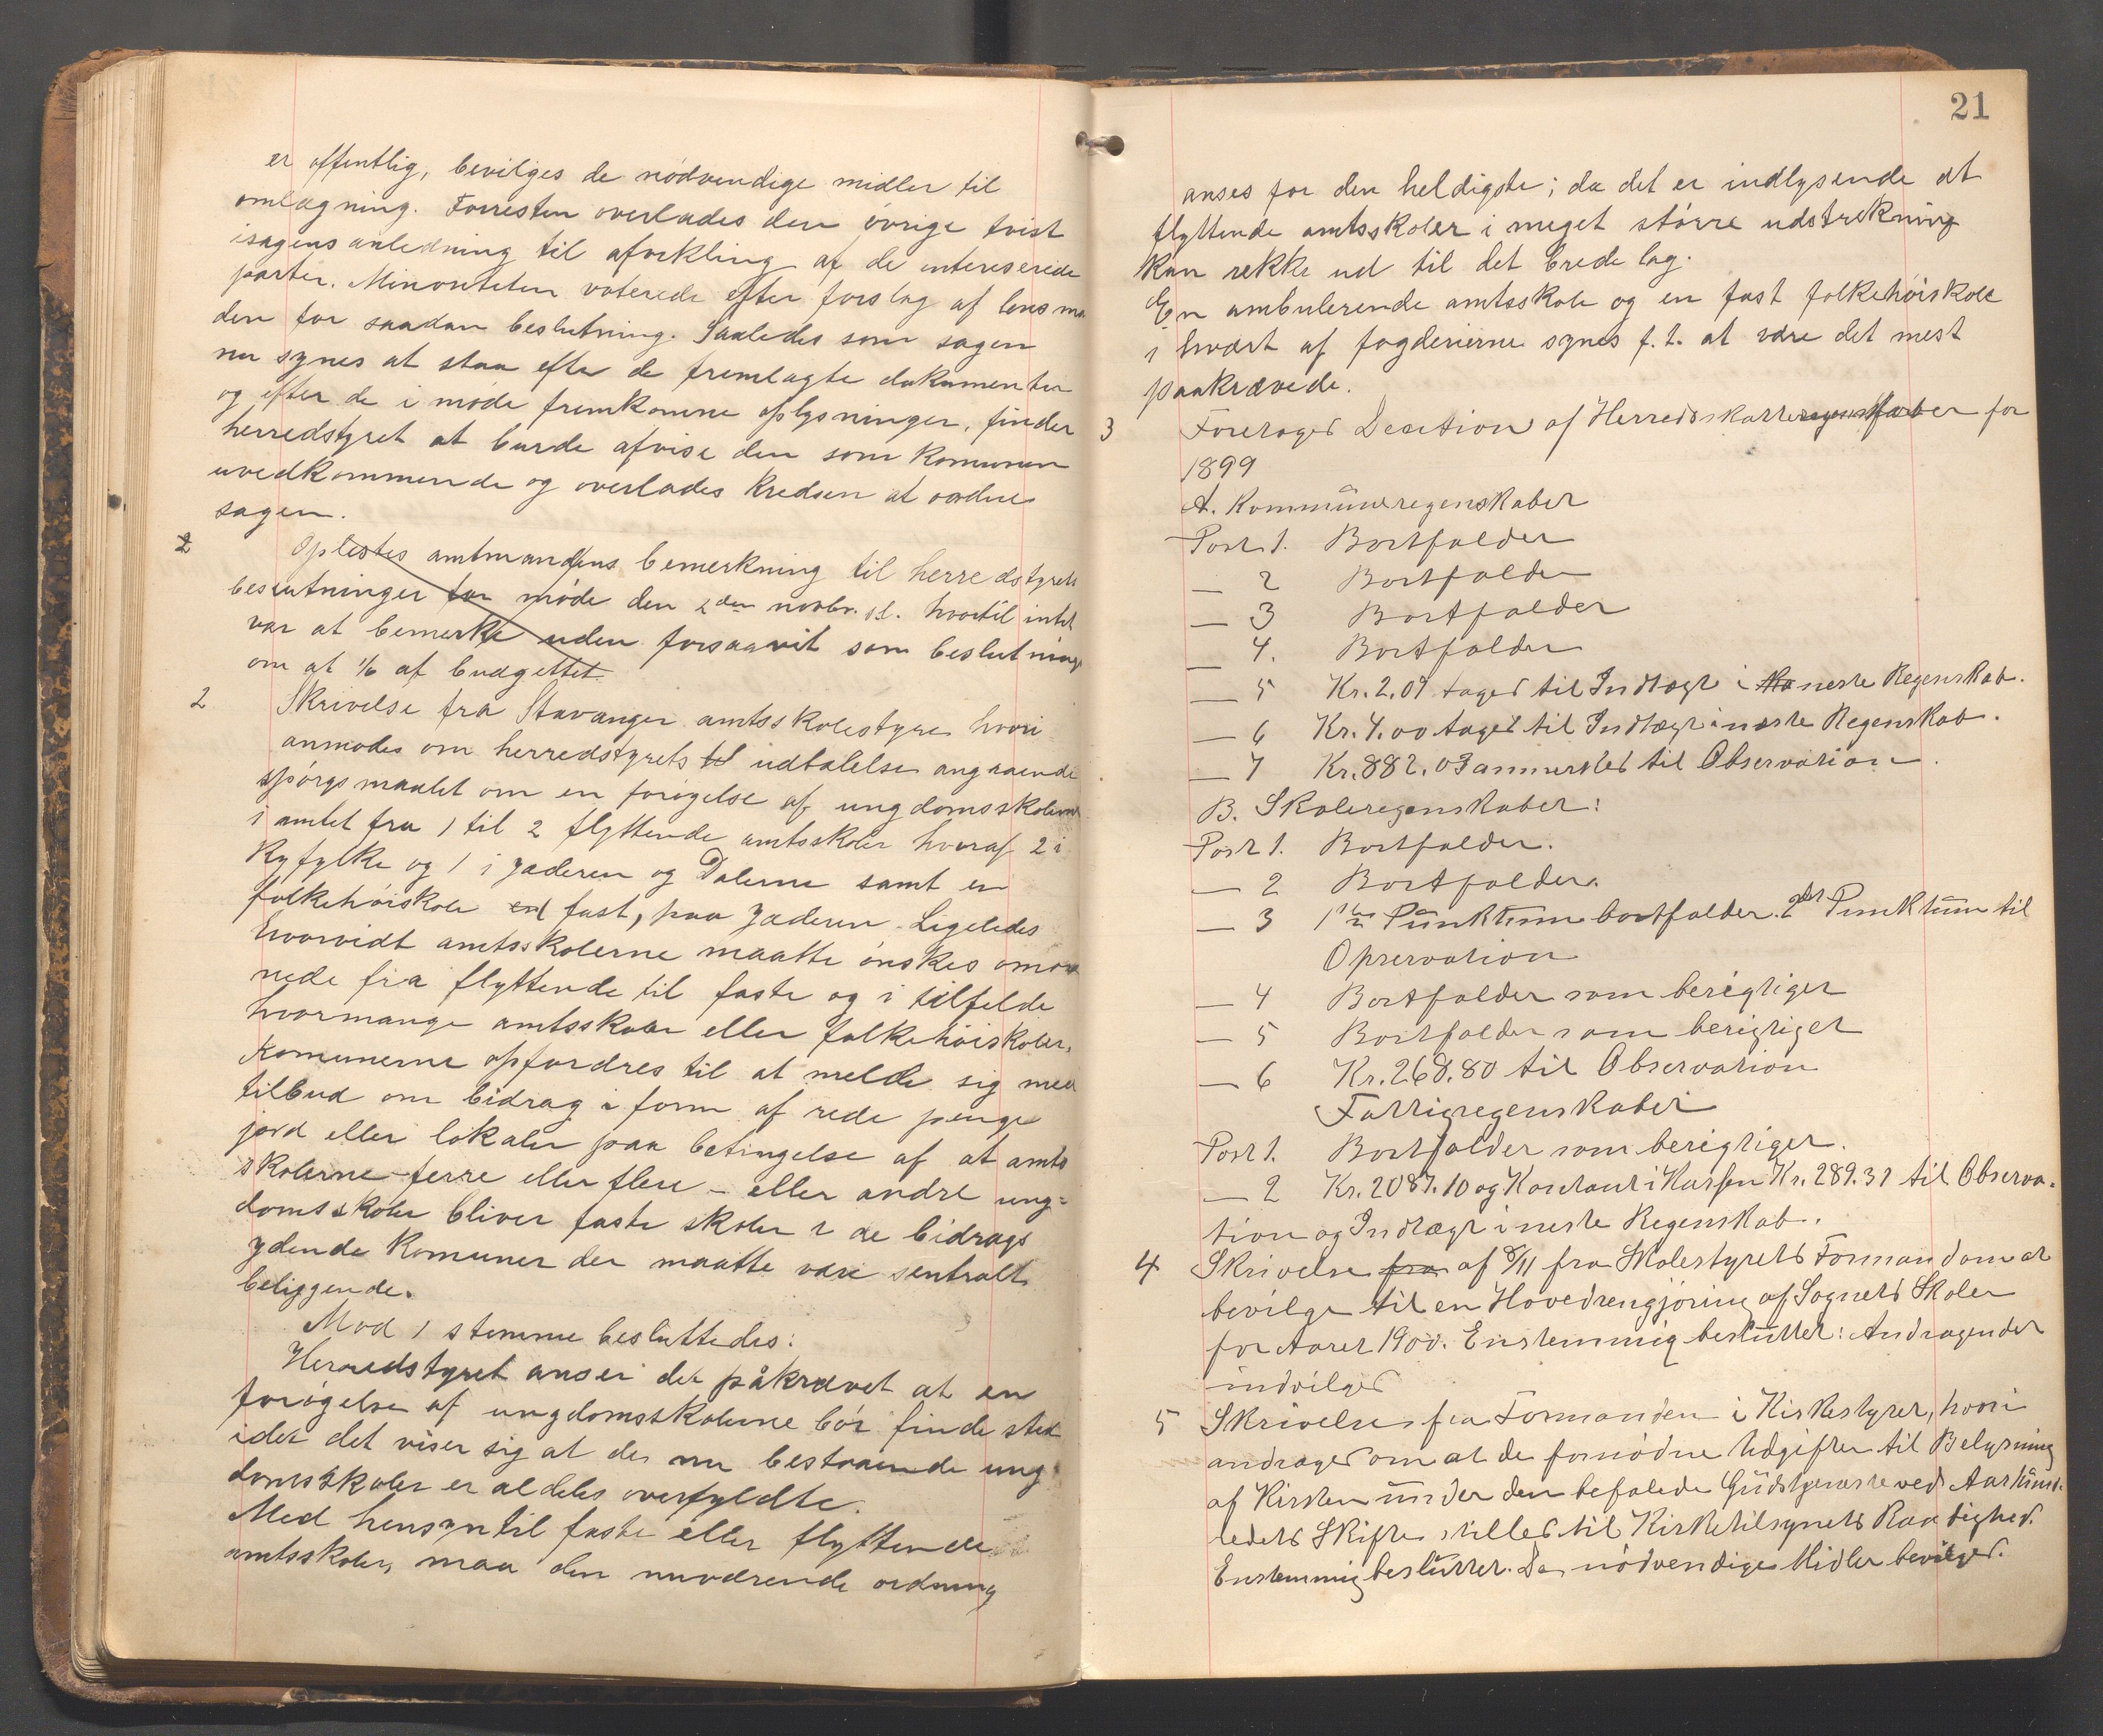 er offentlig, bevilges de nødvendige midler til
omlægning. Forresten overlades den øvrige tvist
isagens anledning til afvikling af de intereserede
parter. Minoriteten voterede efter forslag af lensman
den for saadan beslutning. Saaledes som sagen
nu synes at staa efter de fremlagte dokumenter
og efter de i møde fremkomne oplysninger, finder
herredstyret at burde afvise den som Komunen
uvedkommende og overlades Kredsen at ordne
sagen.
2 Oplestes amtmandens bemerkning til herredstyrets
beslutninger for møde den 2den novbr. d.å. hvortil intet
var at bemerke uden forsaavit som beslutninge
om at 1/6 af budgettet.
2 Skrivelse fra Stavanger amtsskolestyre hvori
anmodes om herredstyrets til udtalelse angaaende
spørgsmaalet om en forøgelse af ungdomsskolerne
i amtet fra 1 til 2 flyttende amtsskoler hvoraf 2 i
Ryfylke og 1 i Jæderen og Dalerne samt en
folkehøiskole en fast, paa Jæderen. Ligeledes
hvorvidt amtsskolerne maatte ønskes omord
nede fra flyttende til faste og i tilfelde
hvormange amtsskoler eller folkehøiskoler.
Komunerne opfordres til at melde sig med
tilbud om bidrag i form af rede penge
jord eller lokaler paa betingelse af at amts
skolerne - ferre eller flere - eller andre ung=
domsskoler bliver faste skoler i de bidrags
ydende Komuner der maatte være sentralt
beliggende.
Mod 1 stemme besluttedes:
Herredstyret anser det påkrævet at en
forøgelse af ungdomsskolerne bør finde sted
idet det viser sig at de nu bestaaende ung
domsskoler er aldeles overfyldte.
Med hensyn til faste eller flyttende
amtsskoler, maa den nuværende ordning
21
anses for den heldigste; da det er indlysende at
flyttende amtsskoler i meget større udstrekning
Kan rekke ud til det brede lag.
En ambulerende amtsskole og en fast folkehøiskole
i hvært af fogderierne synes f. t. at være det mest
paakrævede.
3 Foretoges Decition af Herredskasseregnskaber for
1899
A. Kommuneregenskaber
Post 1. Bortfalder
— 2 Bortfalder
— 3 Bortfalder
— 4. Bortfalder
— 5 Kr. 2.09 tages til Indtægt i neste Regenskab.
— 6 Kr. 4.00 tages til Indtægt i neste Regenskab.
— 7 Kr. 882.03 anmerkes til Observation.
B. Skoleregenskaber:
Post 1. Bortfalder.
— 2 Bortfalder.
— 3 1ste Punktum bortfalder. 2det Punktum til
Opservation
— 4 Bortfalder som berigtiget
— 5 Bortfalder som berigtiget
— 6 Kr. 268.80 til Observation
Fattigregenskaber
Post 1. Bortfalder som berigtiget.
— 2 Kr. 2087.10 og Kontant i Kassen Kr. 289.31 til Observa-
tion og Indtægt i neste Regenskab.
4 Skrivelse fra af 8/11 fra Skolestyrets Formand om at
bevilge til en Hovedrengjøring af Sognets Skoler
for Aaret 1900. Enstemmig besluttet: Andragendet
indvilges
5 Skrivelse fra Formanden i Kirkestyret, hvori
andrages om at de fornødne Udgifter til Belysning
af Kirken under den befalede Gudstjeneste ved Aarhund-
redets Skifte stilles til Kirketilsynets Raadighed.
Enstemmig besluttet. De nødvendige Midler bevilges.